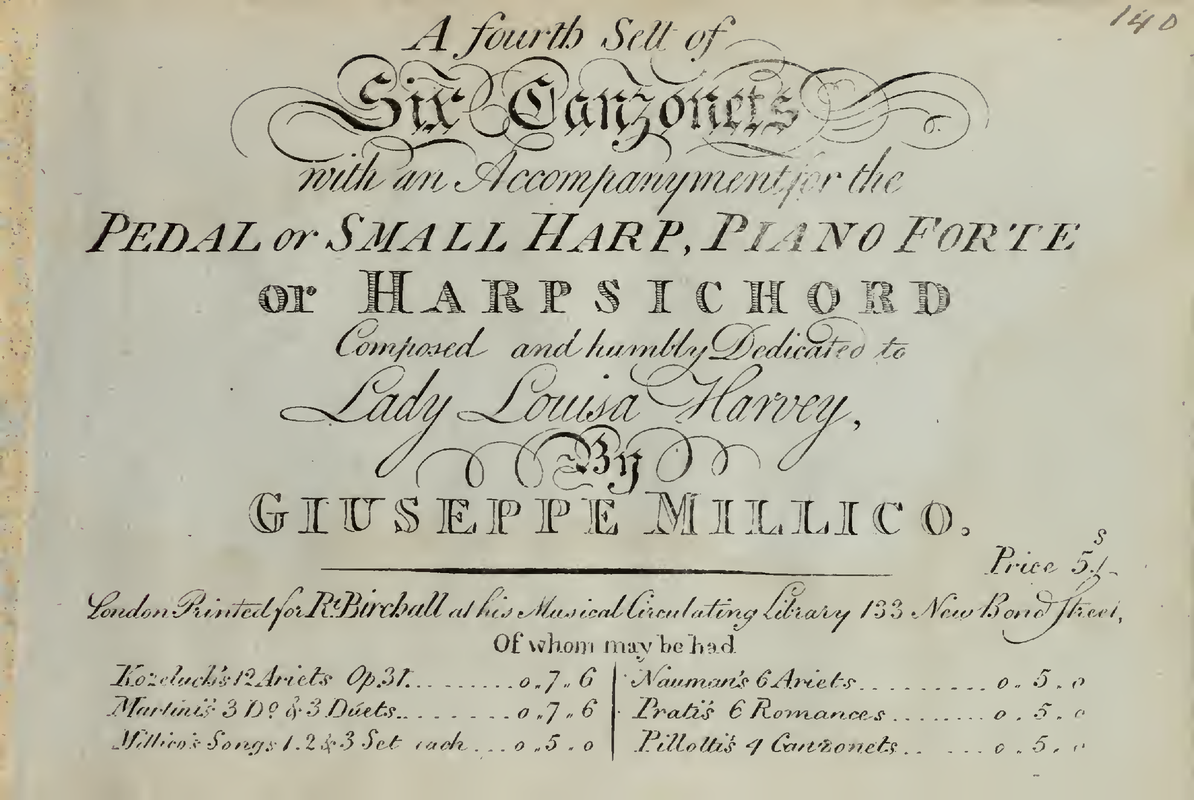 140
A fourth Sett of
Six Canzonets
with an Accompanyment for the
PEDAL or SMALL HARP, PIANO FORTE
or HARPSICHORD
Composed and humbly Dedicated to
Lady Louisa Harvey,
By
GIUSEPPE MILLICO.
Price 5s/-
London Printed for Rt. Birchall at his Musical Circulating Library 133 New Bond Street,
Of whom may be had
Kozeluch's 12 Ariets Op. 31. ........ 0 .. 7 .. 6
Martini's 3 Do. & 3 Duets .......... 0 .. 7 .. 6
Millico's Songs 1. 2 & 3 Set each ... 0 . 5 . 0
Nauman's 6 Ariets ............ 0 . 5 . 0
Prati's 6 Romances ........ 0 . 5 . 0
Pillotti's 4 Canzonets .. ...... 0 . 5 . 0